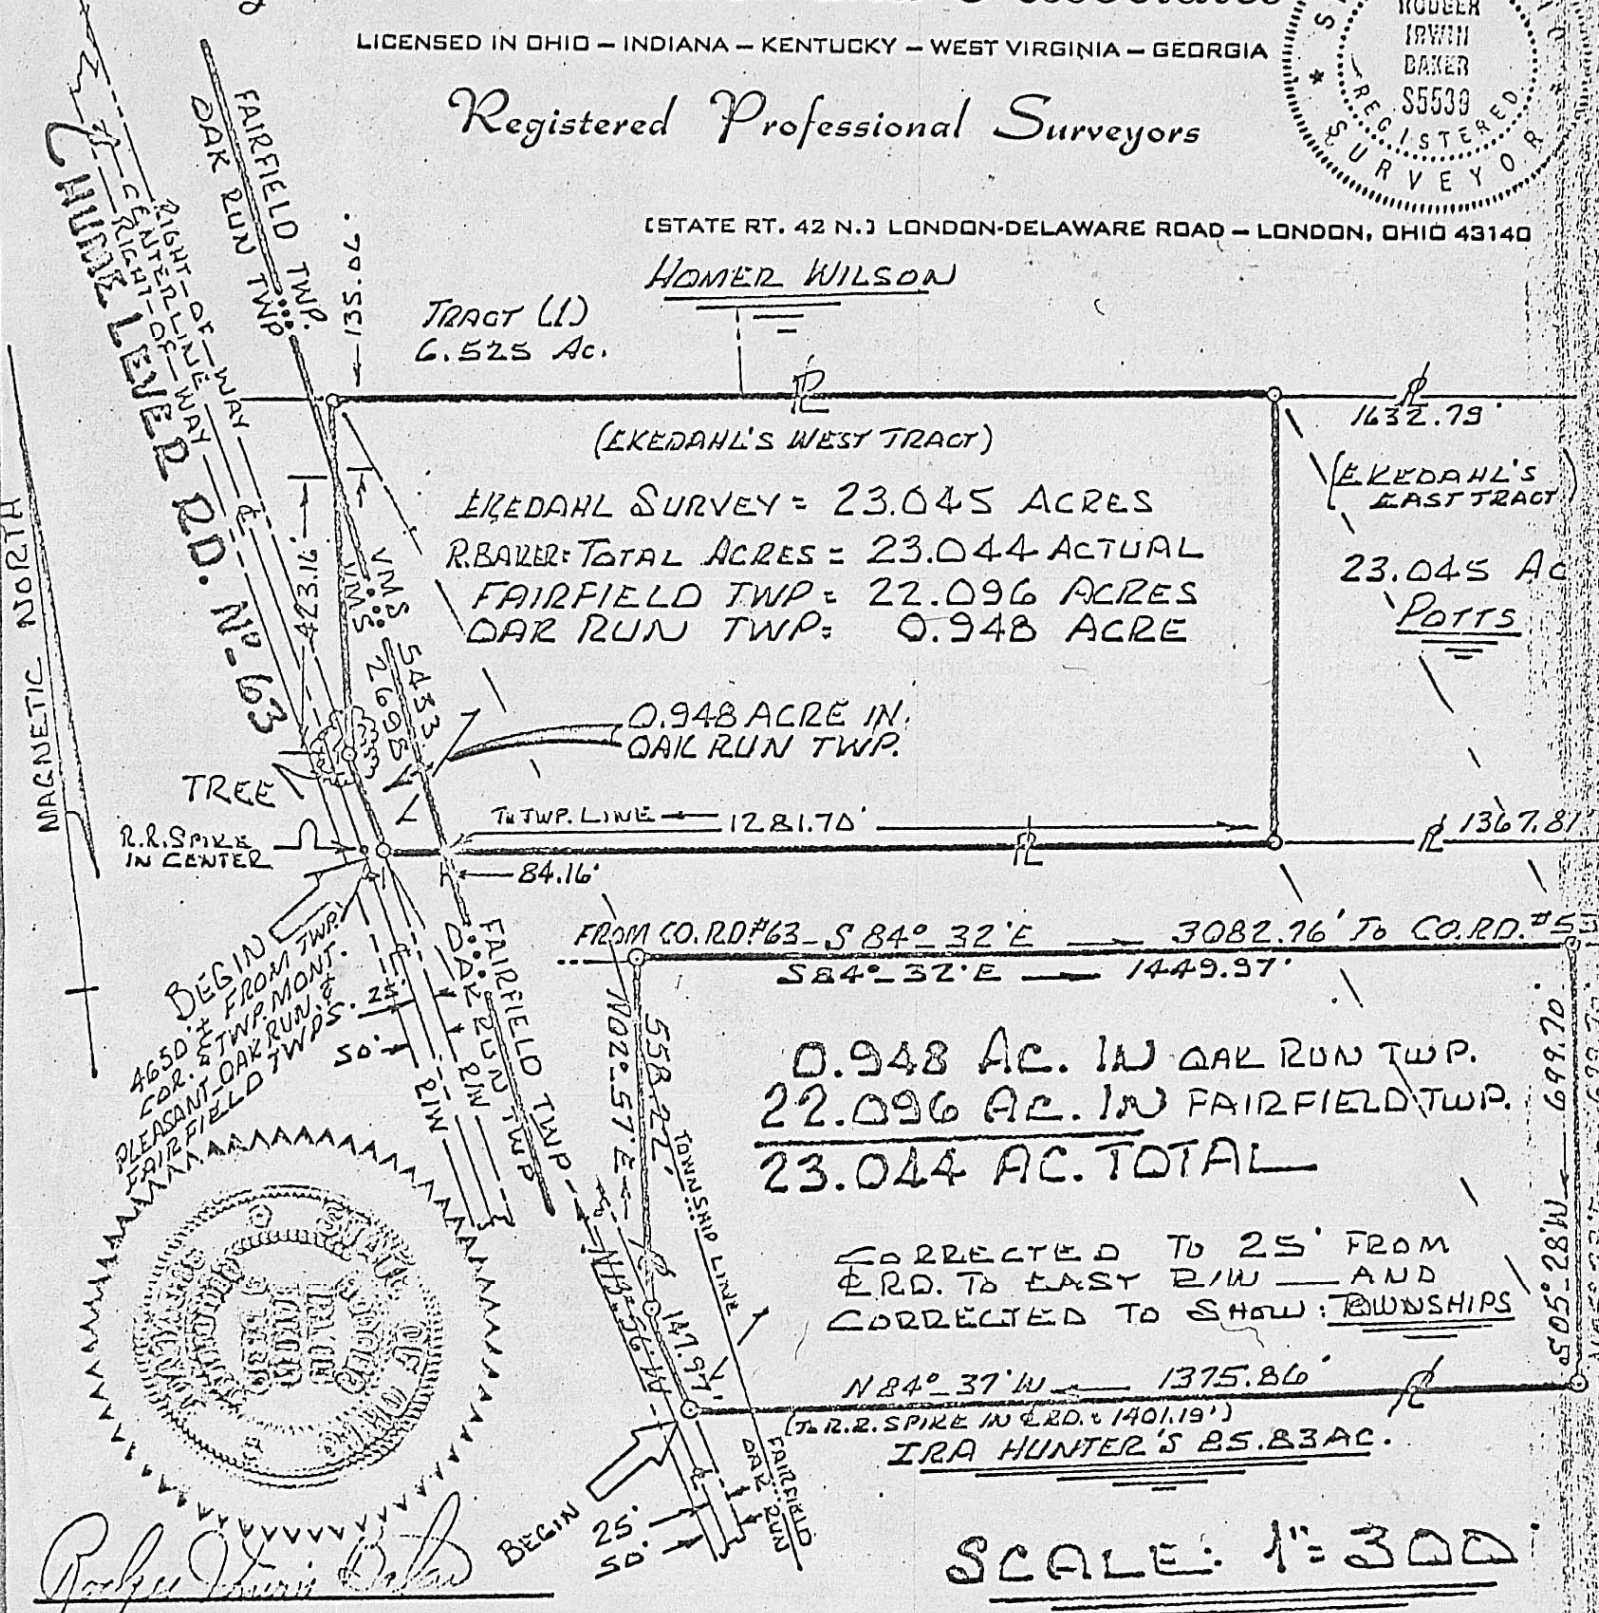 LICENSED IN OHIO – INDIANA – KENTUCKY – WEST VIRGINIA – GEORGIA
Registered Professional Surveyors
RODGER
IRWIN
BAKER
S5539
REGISTERED
SURVEYOR
(STATE RT. 42 N.) LONDON-DELAWARE ROAD – LONDON, OHIO 43140
HOMER WILSON
TRACT (1)
6.525 Ac.
135.06'
FAIRFIELD TWP.
OAK RUN TWP
RIGHT-OF-WAY
CENTERLINE
RIGHT-OF-WAY
RD. Nº-63
MAGNETIC NORTH
1632.79'
(EKEDAHL'S WEST TRACT)
(EKEDAHL'S
EAST TRACT)
EKEDAHL SURVEY = 23.045 ACRES
R.BAKER: TOTAL ACRES = 23.044 ACTUAL
FAIRFIELD TWP = 22.096 ACRES
OAK RUN TWP = 0.948 ACRE
23.045 AC
POTTS
423.16'
VMS 5433
VMS 2698
0.948 ACRE IN.
OAK RUN TWP.
TREE
R.R. SPIKE
IN CENTER
To TWP. LINE 1281.70'
1367.81'
84.16'
BEGIN
4650'± FROM TWP.
COR. & TWP. MONT.
PLEASANT-OAK RUN-&
FAIRFIELD TWPS.
25'
50'
R/W
R/W
FAIRFIELD TWP
OAK RUN TWP
FROM CO. RD. #63 – S 84°-32'E 3082.76' To CO. RD. #53
S84°-32'E 1449.97'
N02°-57'E
558.22'
TOWNSHIP LINE
699.70'
S05°-28'W
0.948 AC. IN OAK RUN TWP.
22.096 AC. IN FAIRFIELD TWP.
23.044 AC. TOTAL
CORRECTED TO 25' FROM
℄ RD. TO EAST R/W — AND
CORRECTED TO SHOW: TOWNSHIPS
N13°-56'W
147.97'
N84°-37'W 1375.86'
(To R.R. SPIKE IN ℄ RD. = 1401.19')
IRA HUNTER'S 85.83 AC.
FAIRFIELD
OAK RUN
BEGIN
25'
50'
STATE OF OHIO
SCALE: 1"=300'